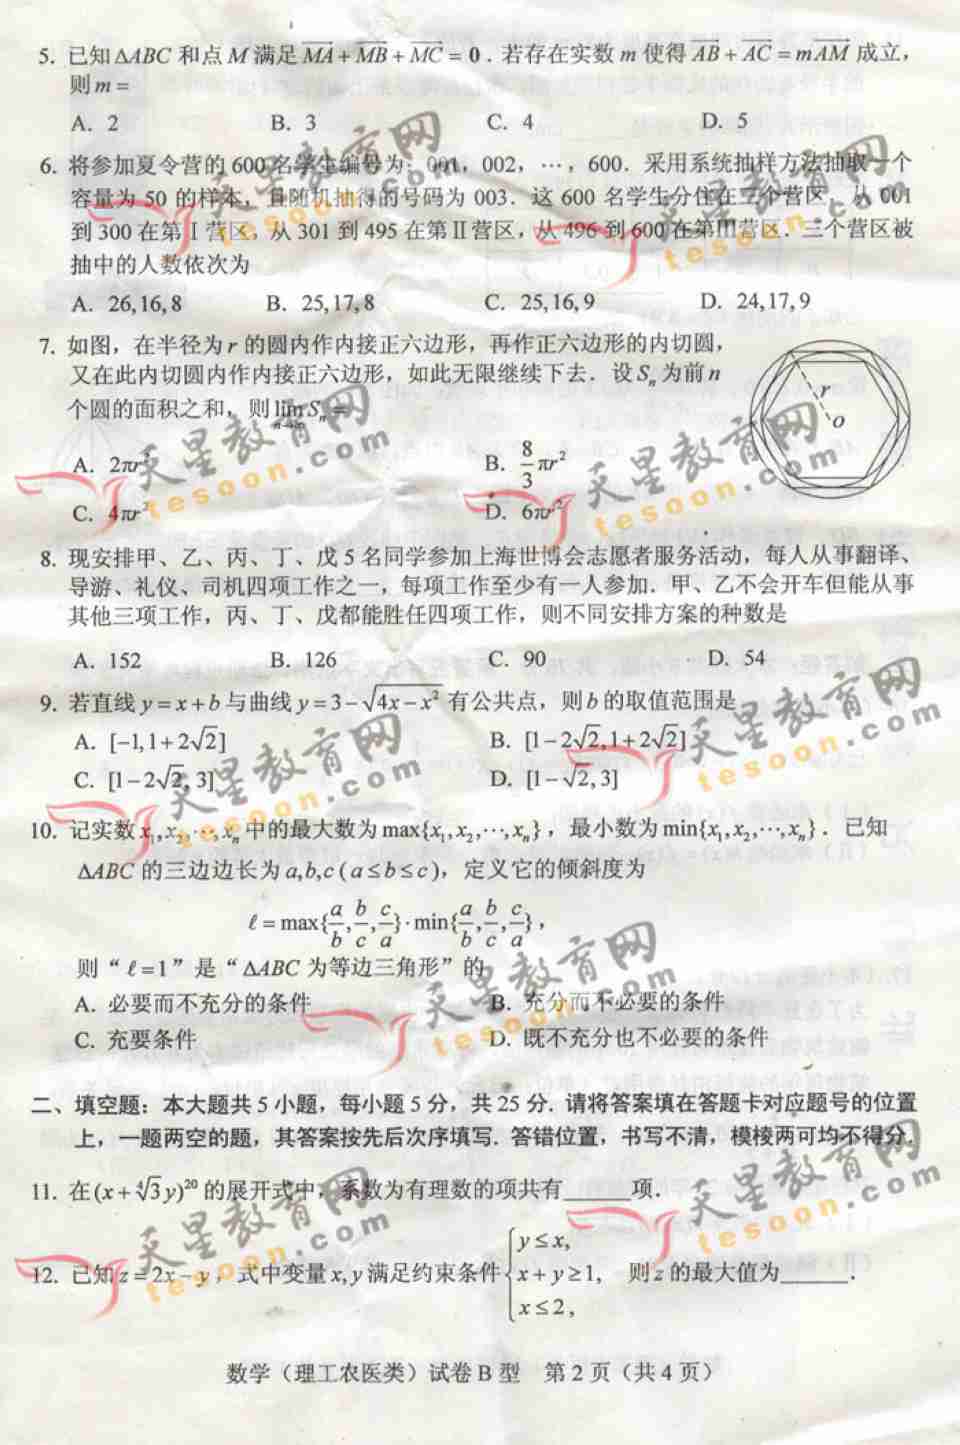 5. 已知 ΔABC 和点 M 满足 MA + MB + MC = 0 . 若存在实数 m 使得 AB + AC = mAM 成立,
则 m =
A. 2 B. 3 C. 4 D. 5
6. 将参加夏令营的 600 名学生编号为: 001, 002, …, 600. 采用系统抽样方法抽取一个
容量为 50 的样本, 且随机抽得的号码为 003. 这 600 名学生分住在三个营区, 从 001
到 300 在第 I 营区, 从 301 到 495 在第 II 营区, 从 496 到 600 在第 III 营区. 三个营区被
抽中的人数依次为
A. 26,16,8 B. 25,17,8 C. 25,16,9 D. 24,17,9
7. 如图, 在半径为 r 的圆内作内接正六边形, 再作正六边形的内切圆,
又在此内切圆内作内接正六边形, 如此无限继续下去. 设 Sₙ 为前 n
个圆的面积之和, 则 lim Sₙ =
n→∞
r
o
A. 2πr² B. 8/3 πr²
C. 4πr² D. 6πr²
8. 现安排甲、乙、丙、丁、戊 5 名同学参加上海世博会志愿者服务活动, 每人从事翻译、
导游、礼仪、司机四项工作之一, 每项工作至少有一人参加. 甲、乙不会开车但能从事
其他三项工作, 丙、丁、戊都能胜任四项工作, 则不同安排方案的种数是
A. 152 B. 126 C. 90 D. 54
9. 若直线 y = x + b 与曲线 y = 3 − √(4x − x²) 有公共点, 则 b 的取值范围是
A. [−1, 1+2√2] B. [1−2√2, 1+2√2]
C. [1−2√2, 3] D. [1−√2, 3]
10. 记实数 x₁, x₂, …, xₙ 中的最大数为 max{x₁, x₂, …, xₙ}, 最小数为 min{x₁, x₂, …, xₙ}. 已知
ΔABC 的三边边长为 a, b, c ( a ≤ b ≤ c ), 定义它的倾斜度为
ℓ = max{a/b, b/c, c/a} · min{a/b, b/c, c/a},
则 “ ℓ =1” 是 “ ΔABC 为等边三角形” 的
A. 必要而不充分的条件 B. 充分而不必要的条件
C. 充要条件 D. 既不充分也不必要的条件
二、填空题: 本大题共 5 小题, 每小题 5 分, 共 25 分. 请将答案填在答题卡对应题号的位置
上, 一题两空的题, 其答案按先后次序填写. 答错位置, 书写不清, 模棱两可均不得分.
11. 在 (x + ∜3 y)²⁰ 的展开式中, 系数为有理数的项共有______项.
12. 已知 z = 2x − y, 式中变量 x, y 满足约束条件 { y ≤ x, x + y ≥ 1, x ≤ 2, 则 z 的最大值为______.
数学（理工农医类）试卷 B 型 第 2 页（共 4 页）
天星教育网
tesoon.com
天星教育网
tesoon.com
天星教育网
tesoon.com
天星教育网
tesoon.com
天星教育网
tesoon.com
天星教育网
tesoon.com
天星教育网
tesoon.com
天星教育网
tesoon.com
天星教育网
tesoon.com